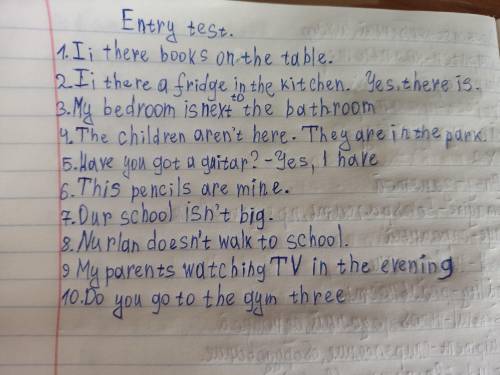 Entry test.
1. Ii there books on the table.
2. Ii there a fridge in the kitchen. Yes. there is.
3. My bedroom is next to the bathroom
4. The children aren't here. They are in the park.
5. Have you got a guitar? - Yes, I have
6. This pencils are mine.
7. Our school isn't big.
8. Nurlan doesn't walk to school.
9 My parents watching TV in the evening
10. Do you go to the gym three